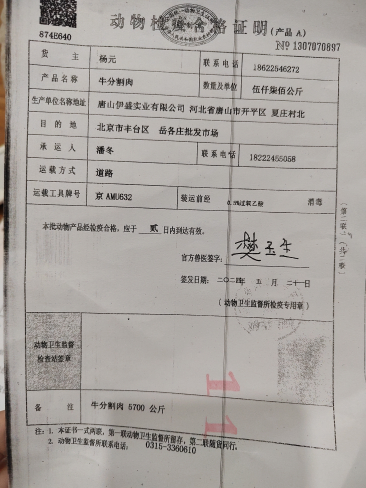 动物检疫合格证明（产品 A）
874E640
№ 1307070897
货主 杨元 联系电话 18622546272
产品名称 牛分割肉 数量及单位 伍仟柒佰公斤
生产单位名称地址 唐山伊盛实业有限公司 河北省唐山市开平区 夏庄村北
目的地 北京市丰台区 岳各庄批发市场
承运人 潘冬 联系电话 18222455058
运载方式 道路
运载工具牌号 京 AMU632 装运前经 0.3%过氧乙酸 消毒
本批动物产品经检疫合格，应于 贰 日内到达有效。
官方兽医签字：樊玉生
签发日期：二〇二四年 五月 二十一日
（动物卫生监督所检疫专用章）
动物卫生监督
检查站签章
11
备注 牛分割肉 5700 公斤
注：1. 本证书一式两联，第一联动物卫生监督所留存，第二联随货同行。
2. 动物卫生监督所联系电话：0315-3360610